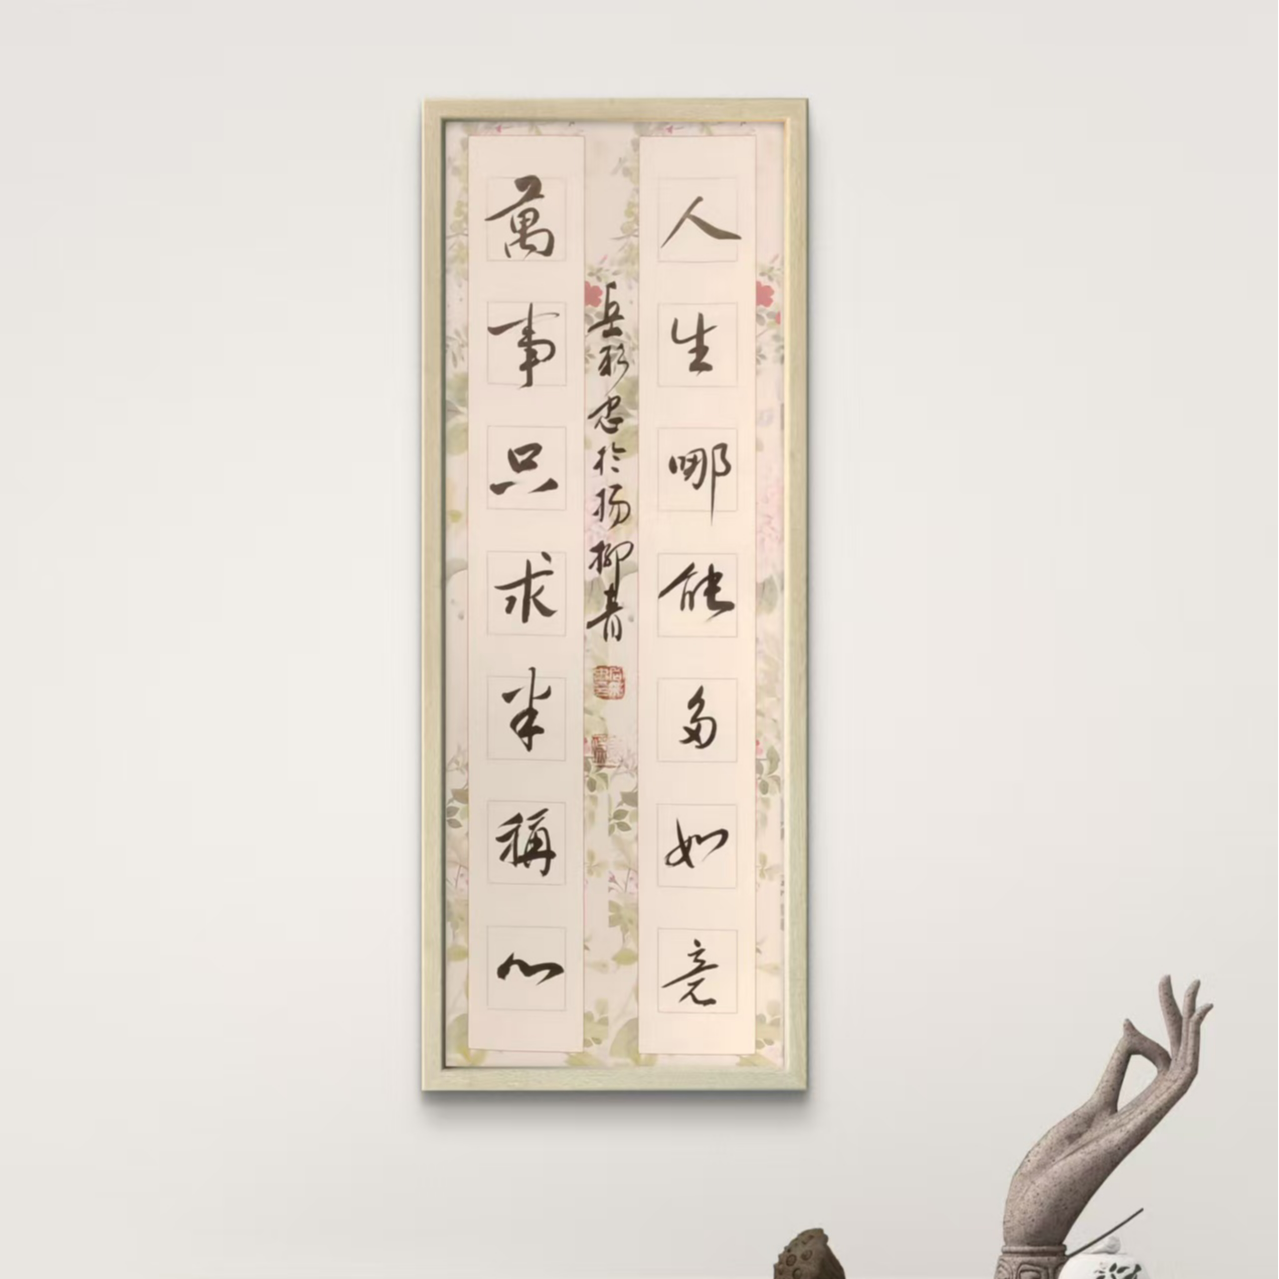 人生哪能多如意
萬事只求半稱心
岳彩忠於扬柳青